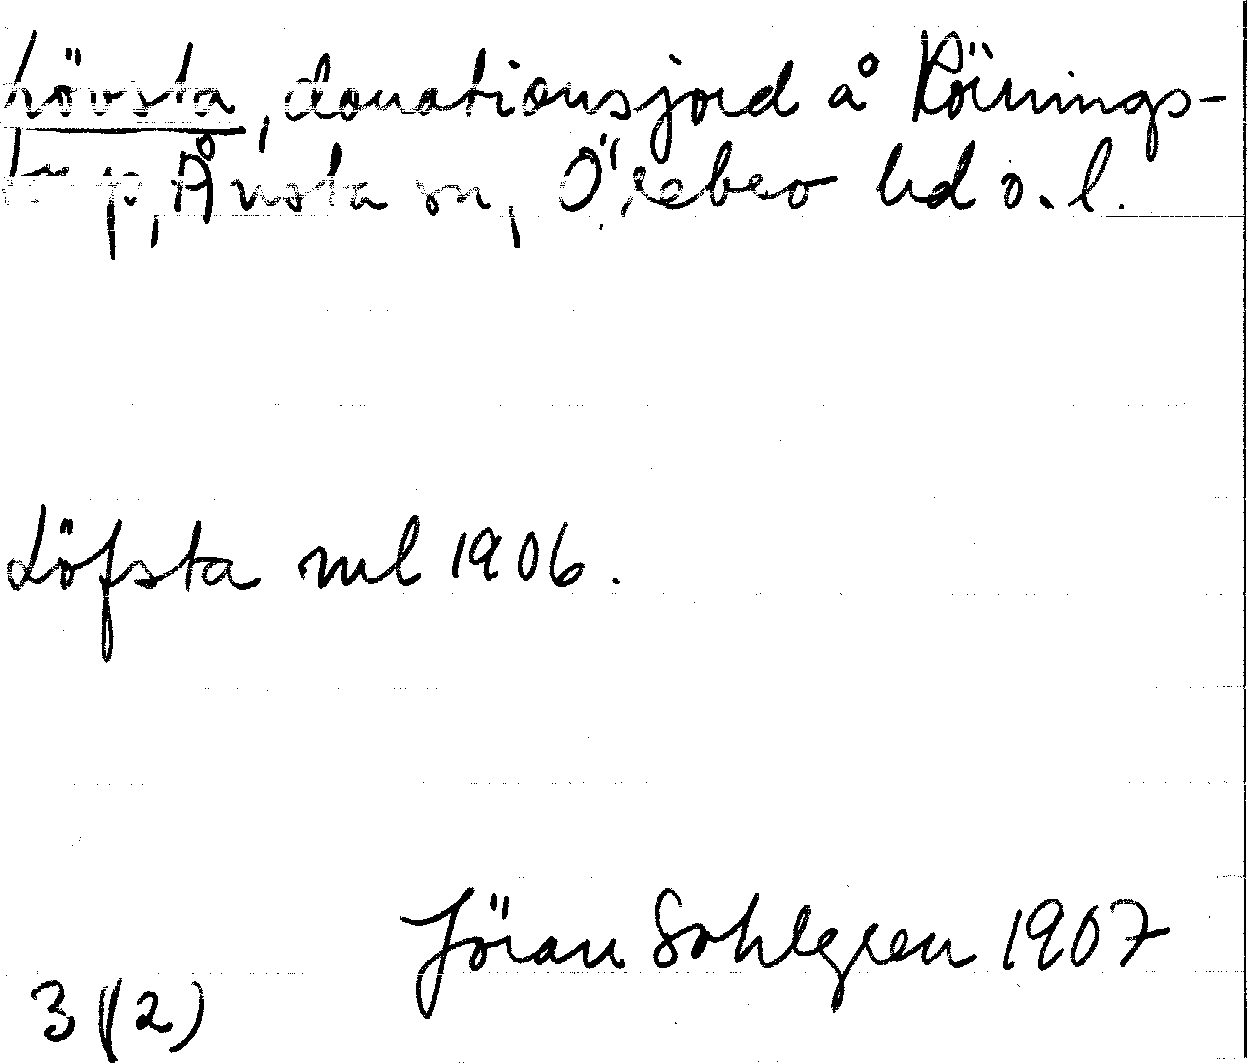 Lövsta, donationsjord å
Ånsta sn, Örebro hd o. l.
Löfsta ml 1906.
Jöran Sahlgren 1907
3 (2)